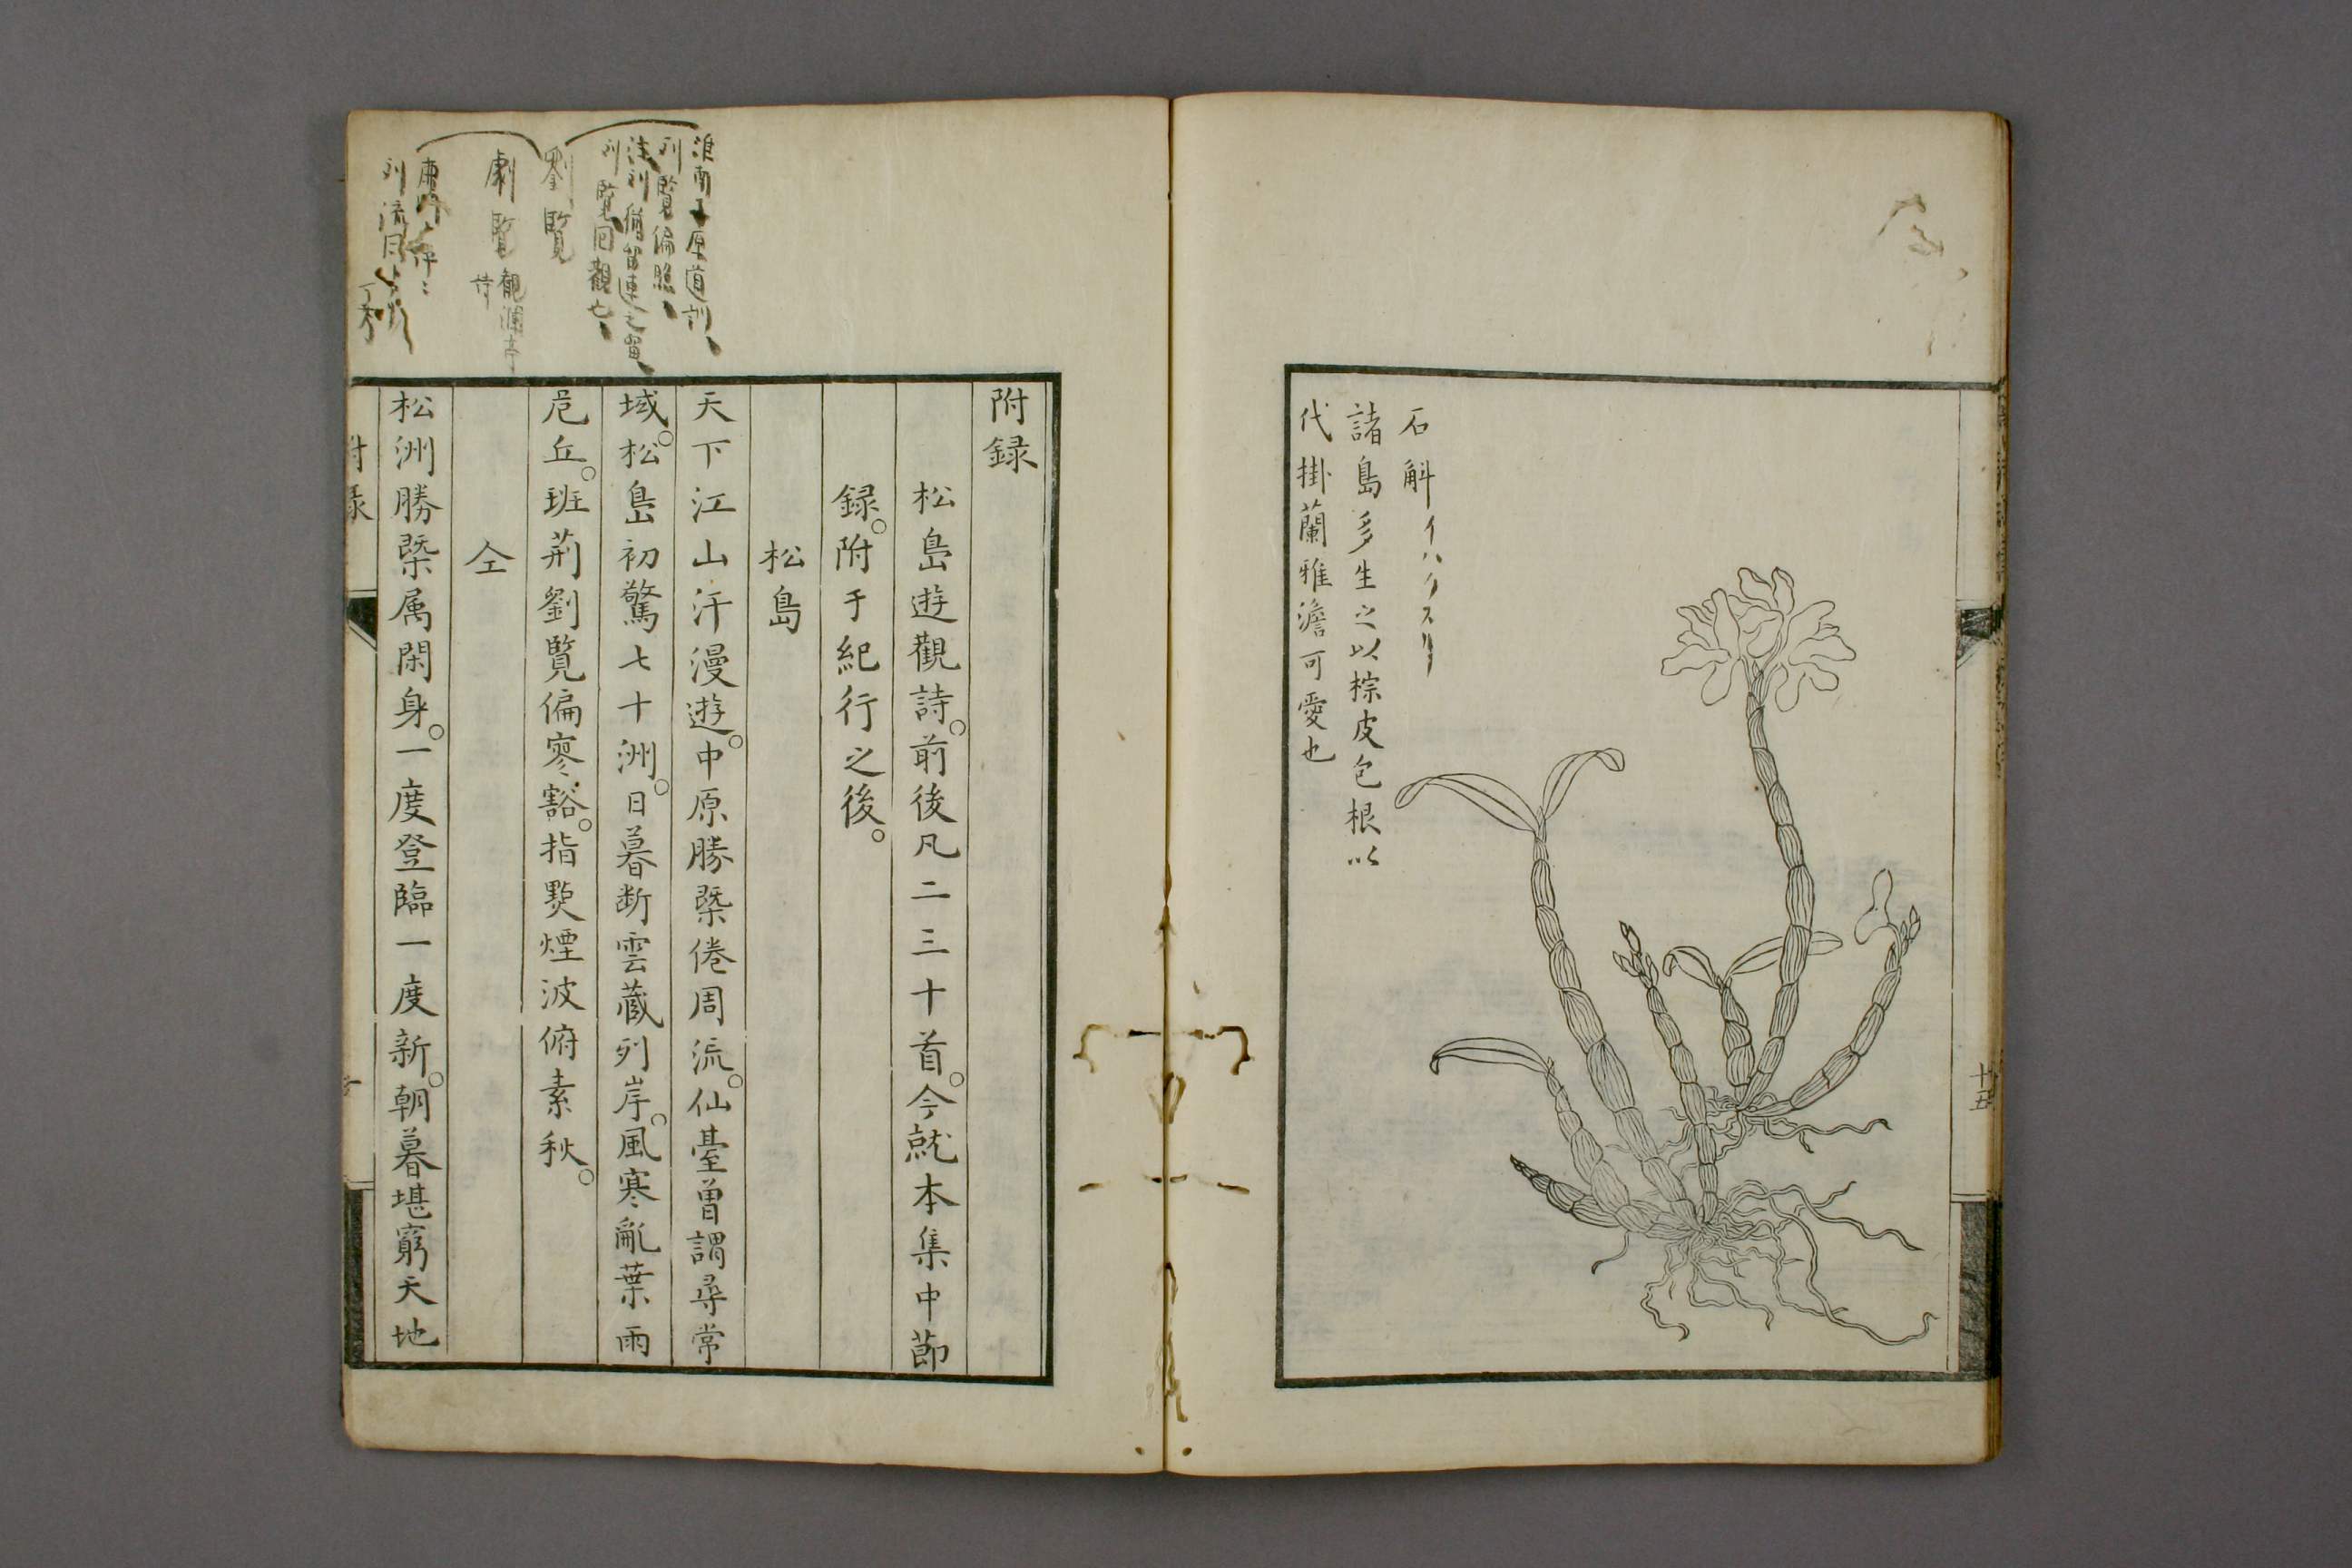 石斛イハクスリ
諸島多生之以棕皮包根以
代掛蘭雅澹可愛也
十五
附録
松島遊觀詩。前後凡二三十首。今就本集中節
録。附于紀行之後。
松島
天下江山汗漫遊。中原勝槩倦周流。仙臺曽謂尋常
域。松島初驚七十洲。日暮断雲蔵列岸。風寒亂葉雨
危丘。班荊劉覧偏寥豁。指㸃煙波俯素秋。
仝
松洲勝槩属閑身。一度登臨一度新。朝暮堪窮天地
附録
淮南子原道訓
劉覧偏照
注劉
覧回觀也
劉覧
劇覧
觀瀾亭
詩